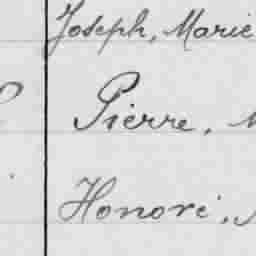 Joseph, Marie
Pierre,
Honoré,